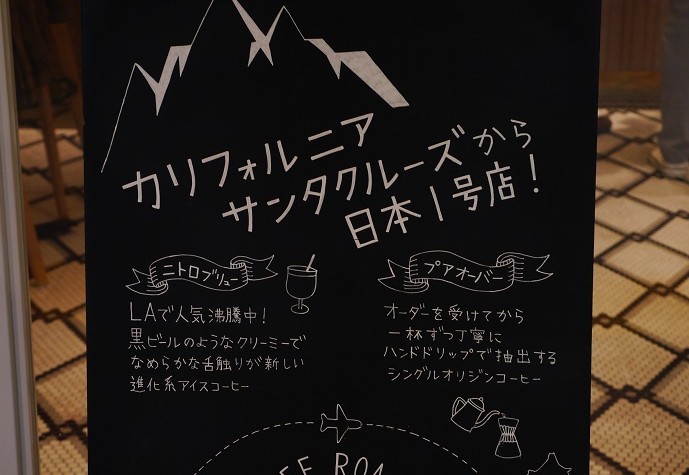 カリフォルニア
サンタクルーズから
日本1号店!
ニトロブリュー
LAで人気沸騰中!
黒ビールのようなクリーミーで
なめらかな舌触りが新しい
進化系アイスコーヒー
プアオーバー
オーダーを受けてから
一杯ずつ丁寧に
ハンドドリップで抽出する
シングルオリジンコーヒー